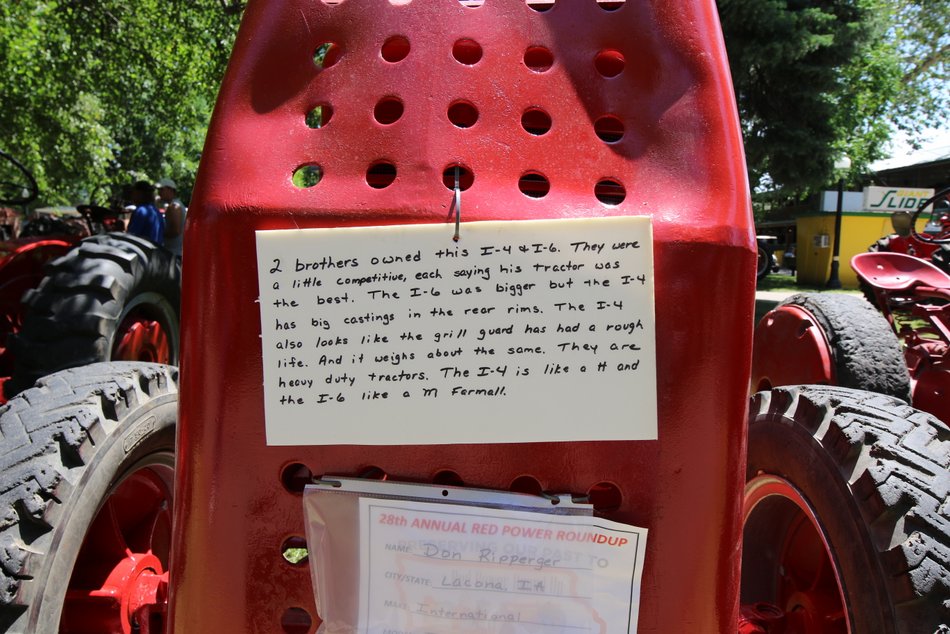 2 brothers owned this I-4 & I-6. They were
a little competitive, each saying his tractor was
the best. The I-6 was bigger but the I-4
has big castings in the rear rims. The I-4
also looks like the grill guard has had a rough
life. And it weighs about the same. They are
heavy duty tractors. The I-4 is like a H and
the I-6 like a M Farmall.
28th ANNUAL RED POWER ROUNDUP
PRESERVING OUR PAST TO
NAME Don Ripperger
CITY/STATE Lacona, IA
MAKE International
SLIDE